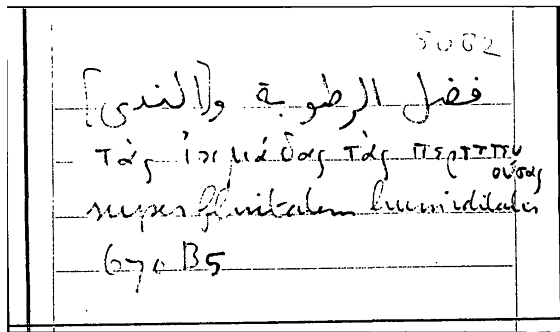 8002
فضل الرطوبة و[الندى]
τὰς ἰκμάδας τὰς περιττευ
ούσας
superfluitatem humiditatis
670 B5